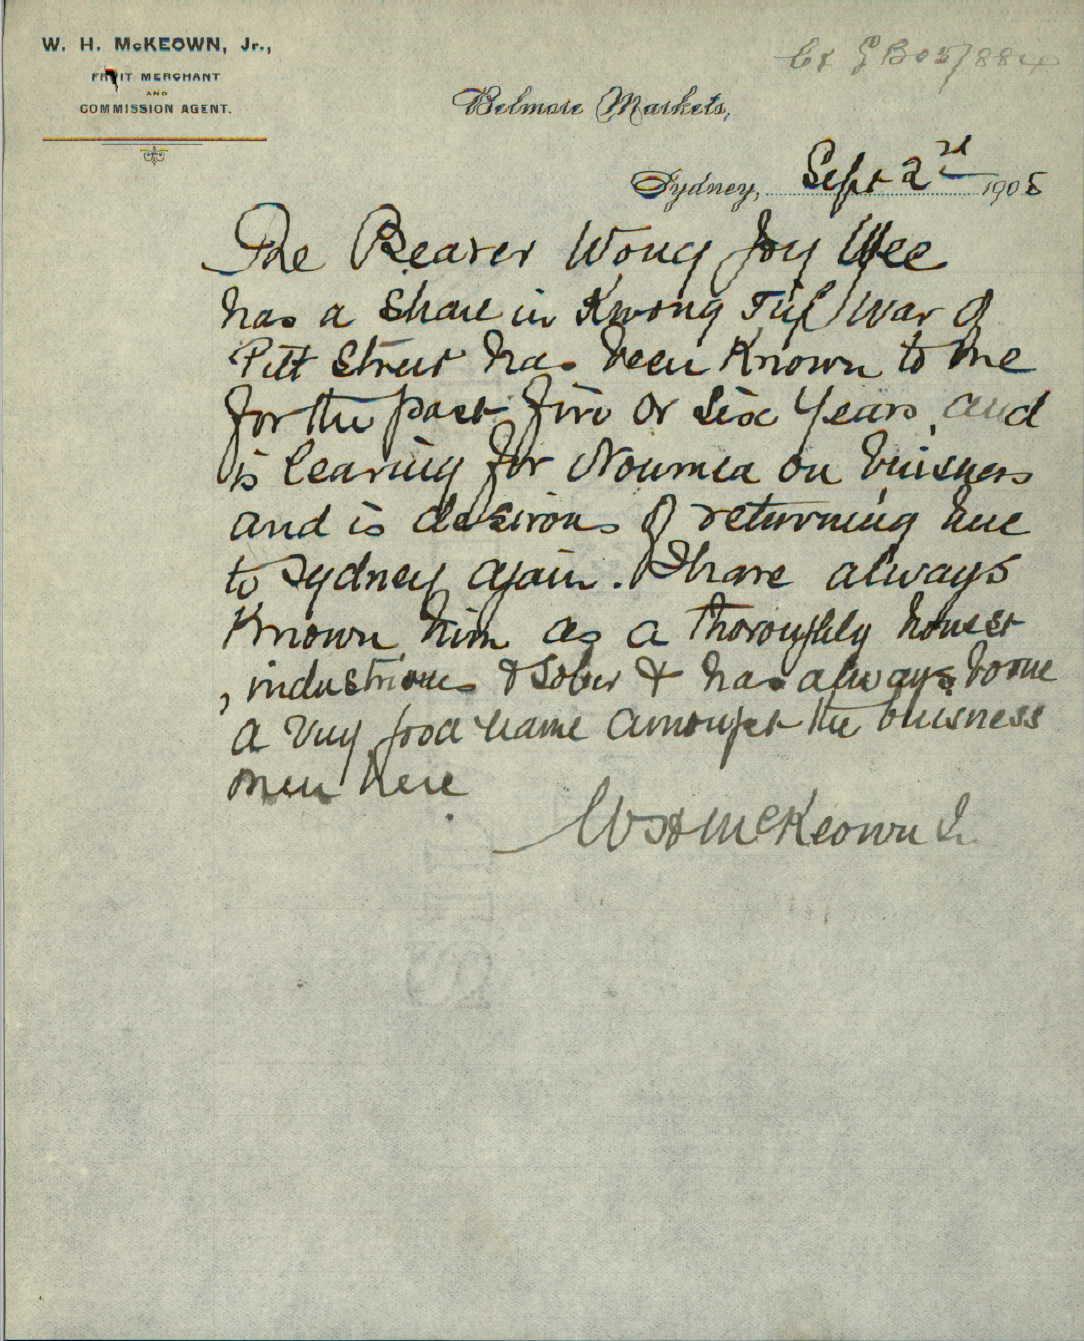 W. H. McKEOWN, Jr.,
FRUIT MERCHANT
AND
COMMISSION AGENT.
Belmore Markets,
Sydney, Sept 2nd 1905
The Bearer Wong Joy Wee
has a share in Kwong War of
Pitt Street has been Known to me
for the past five or six years, and
is leaving for Noumea on buisness
and is desirous of returning here
to Sydney again. I have always
Known him as a thoroughly honest
, industrious & Sober & has always borne
a very good name amongst the buisness
men here.
W H McKeown Jr